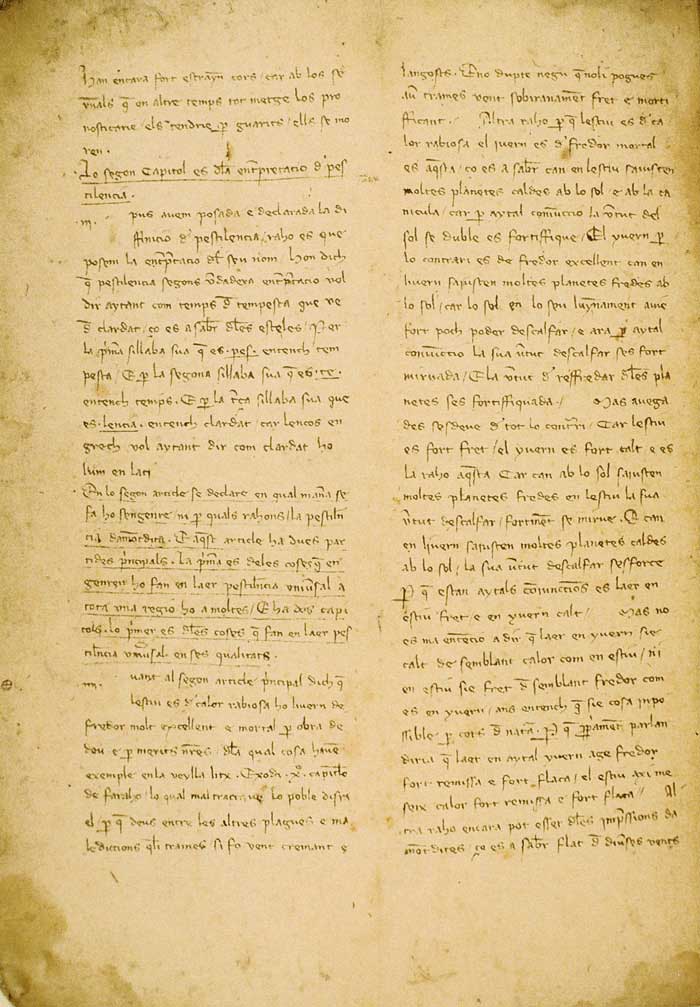 han encara fort estrayn cors / car ab los se
nyals q̄ en altre temps tot metge los pro
nosticarie / els tendrie ꝑ guarits / ells se mo
ren .
Lo segon Capitol es dl̄a ent̄p̄retacio d' pes
tilencia .
pus auem posada e declarada la di
ffinicio d' pestilencia / raho es que
posem la ent̄p̄tacio dl̄ seu nom / hon dich
q̄ pestilencia segons v̄dadera ent̄p̄tacio vol
dir aytant com temps d̄ tempesta que ve
d̄ clardat / ço es a sab̄r dl̄es esteles / Per
la p̄ma sillaba sua q̄ es . pes . entench tem
pesta / E ꝑ la segona sillaba sua q̄ es . te .
entench temps . E ꝑ la t̄ça sillaba sua que
es . lencia . entench clardat / car lencos en
grech vol aytant dir com clardat ho
lum en lati
En lo segon article se declare en qual man̄a se
fa ho sengenre / ni ꝑ quals rahons / la pestilēn
cia damōtdita . E aq̄st article ha dues par
tides p̄ncipals . La p̄ma es deles coses q̄ en
genren ho fan en laer pestilēcia vniūsal a
tota vna regio ho a moltes / E ha dos capi
tols . lo p̄mer es dl̄es coses q̄ fan en laer pes
tilēcia vniūsal en ses qualitats .
uant al segon article p̄ncipal dich q̄
lestiu es d' calor rabiosa ho liuern de
fredor molt excellent e mortal ꝑ obra de
deu e ꝑ merits nr̄es . dl̄a qual cosa hauē
exemple en la veylla litx . Exodi . xº . capitl̄e
de farao / lo qual mal tractaue lo poble disra
el . ꝑ q̄ deus entre les altres plagues e ma
ledictions q̄li trames / si fo vent cremant e
langosts . E no dupte negu q̄ noli pogues
auer trames vent sobiranamēt fret e morti
fficant . Altra raho ꝑ q̄ lestiu es d' ca
lor rabiosa el iuern es d' fredor mortal
es aq̄sta / ço es a sab̄r can en lestiu saiusten
moltes planetes caldes ab lo sol e ab la ca
nicula / car ꝑ aytal coniūctio la v̄tut del
sol se duble es fortiffique / El yuern ꝑ
lo contrari es de fredor excellent can en
liuern saiusten moltes planetes fredes ab
lo sol / car lo sol en lo seu lunynament auie
fort poch poder descalfar / e ara ꝑ aytal
coniūctio la sua v̄tut descalfar ses fort
minuada / E la v̄tut d' reffredar dl̄es pla
netes ses fortiffiquada . Mas auega
des sesdeue d' tot lo contr̄ri / Car lestiu
es fort fret / el yuern es fort calt e es
la raho aq̄sta Car can ab lo sol saiusten
moltes planetes fredes en lestiu la sua
v̄tut descalfar / fortmēt se minue . E can
en liuern saiusten moltes planetes caldes
ab lo sol / la sua v̄tut descalfar sesforce
ꝑ q̄ estan aytals coniūctions es laer en
estiu fret e en yuern calt / Mas no
es ma entēcio a dir q̄ laer en yuern sie
calt de semblant calor com en estiu / ni
en estiu sie fret d' semblant fredor com
es en yuern / ans entench q̄ sie cosa inpo
ssible ꝑ cors d' nat̄a . ꝑ q̄ ꝓp̄amēt parlan
diria q̄ laer en aytal yuern age fredor
fort remissa e fort flaca / el estiu axi me
seix calor fort remissa e fort flaca / Al
tra raho encara pot esser dl̄es inp̄ssions da
mōtdites / ço es a sab̄r flat d̄ diūses vents